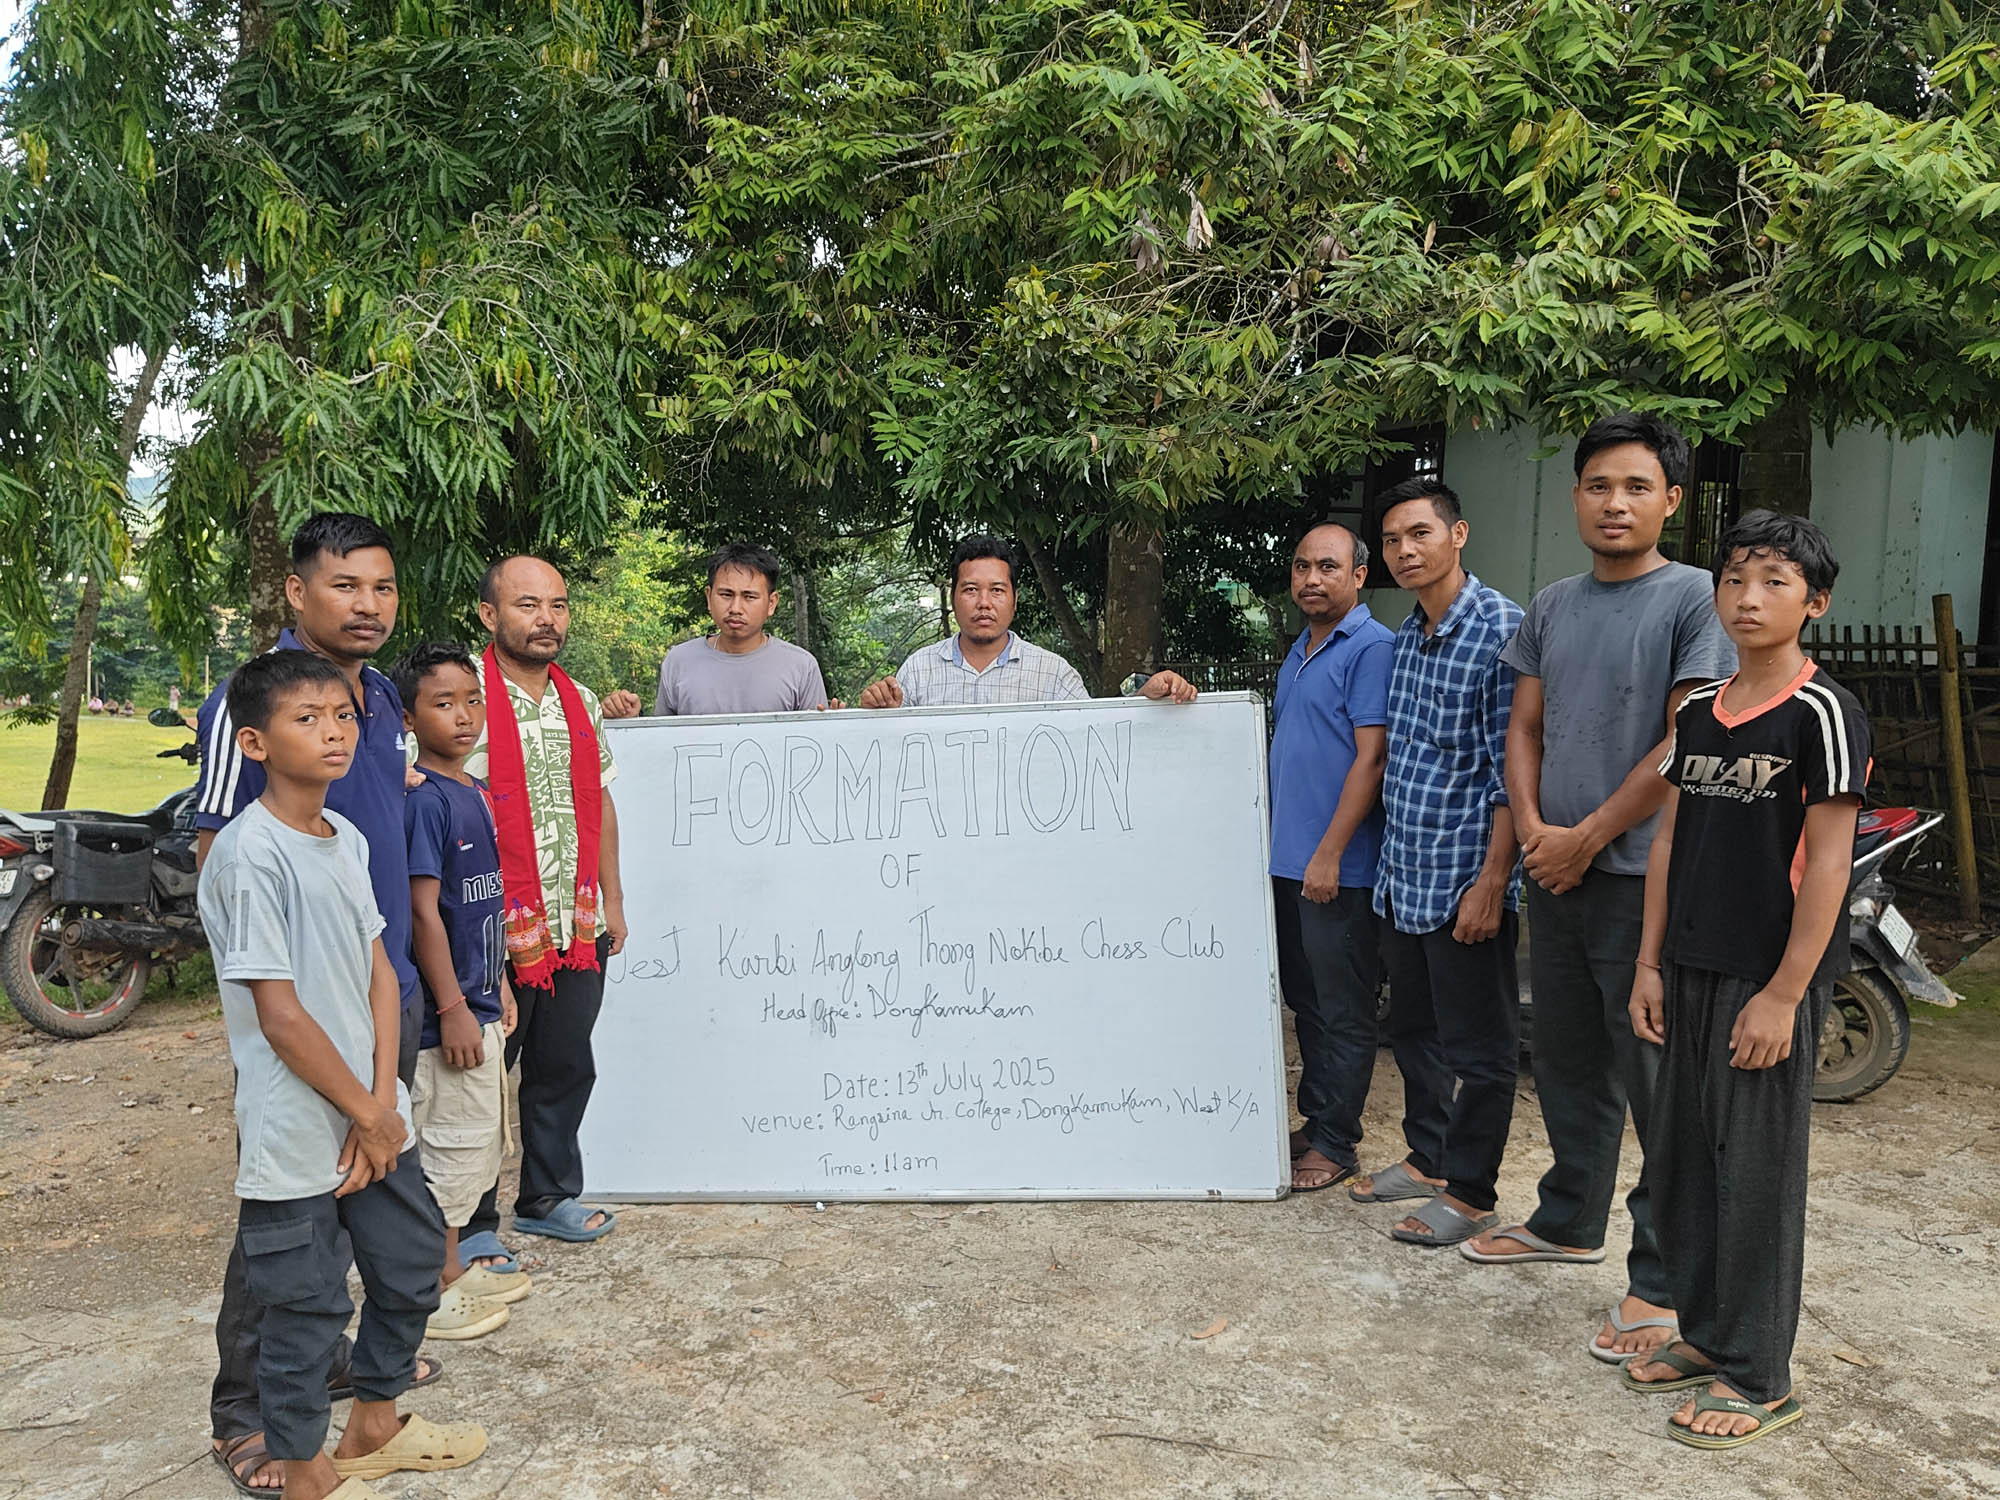 FORMATION
OF
West Karbi Anglong Thong Nokbe Chess Club
Head Office: Dongkamukam
Date: 13th July 2025
venue: Rangsina Jr. College, Dongkamukam, West K/A
Time: 11am
MES
10
PLAY